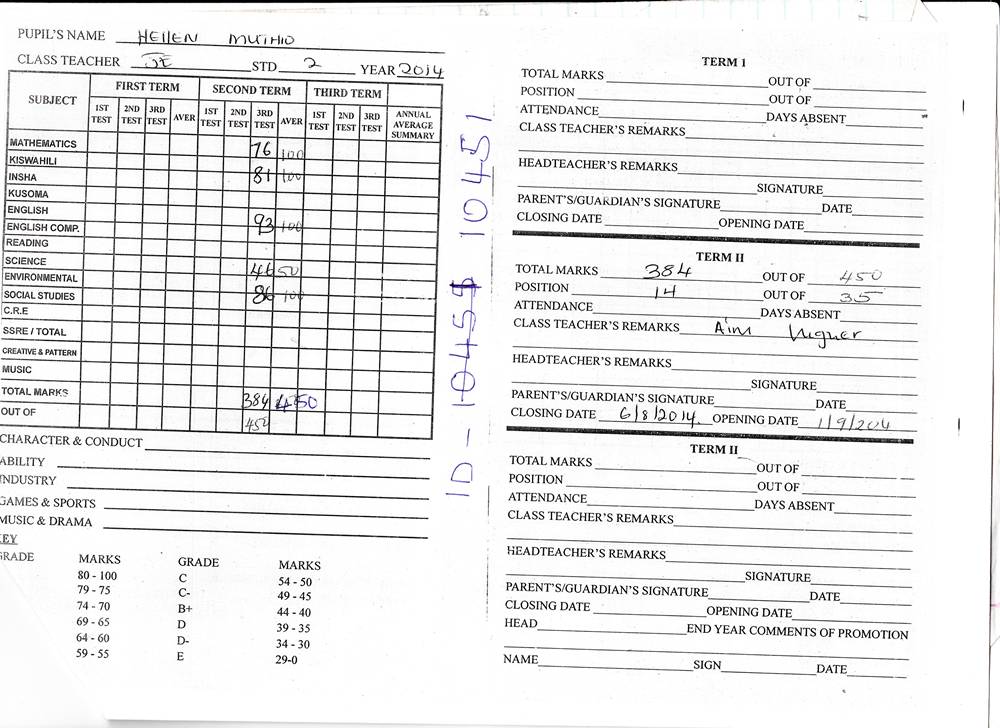 PUPIL'S NAME HEllEN MUTHIO
CLASS TEACHER STD 2 YEAR 2014
SUBJECT FIRST TERM SECOND TERM THIRD TERM
1ST TEST 2ND TEST 3RD TEST AVER 1ST TEST 2ND TEST 3RD TEST AVER 1ST TEST 2ND TEST 3RD TEST ANNUAL AVERAGE SUMMARY
MATHEMATICS 76 100
KISWAHILI
INSHA 81 100
KUSOMA
ENGLISH
ENGLISH COMP. 93 100
READING
SCIENCE 46 50
ENVIRONMENTAL
SOCIAL STUDIES 86 100
C.R.E
SSRE / TOTAL
CREATIVE & PATTERN
MUSIC
TOTAL MARKS 384 450
OUT OF 450
CHARACTER & CONDUCT
ABILITY
INDUSTRY
GAMES & SPORTS
MUSIC & DRAMA
KEY
GRADE MARKS GRADE MARKS
80 - 100 C 54 - 50
79 - 75 C- 49 - 45
74 - 70 B+ 44 - 40
69 - 65 D 39 - 35
64 - 60 D- 34 - 30
59 - 55 E 29-0
ID - 10451
TERM I
TOTAL MARKS OUT OF
POSITION OUT OF
ATTENDANCE DAYS ABSENT
CLASS TEACHER'S REMARKS
HEADTEACHER'S REMARKS
SIGNATURE
PARENT'S/GUARDIAN'S SIGNATURE DATE
CLOSING DATE OPENING DATE
TERM II
TOTAL MARKS 384 OUT OF 450
POSITION 14 OUT OF 35
ATTENDANCE DAYS ABSENT
CLASS TEACHER'S REMARKS Aim Higher
HEADTEACHER'S REMARKS
SIGNATURE
PARENT'S/GUARDIAN'S SIGNATURE DATE
CLOSING DATE 6/8/2014 OPENING DATE
TERM II
TOTAL MARKS OUT OF
POSITION OUT OF
ATTENDANCE DAYS ABSENT
CLASS TEACHER'S REMARKS
HEADTEACHER'S REMARKS
SIGNATURE
PARENT'S/GUARDIAN'S SIGNATURE DATE
CLOSING DATE OPENING DATE
HEAD END YEAR COMMENTS OF PROMOTION
NAME SIGN DATE